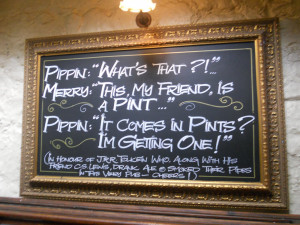 Pippin: "What's that?!...
Merry: "This, my friend, is
a pint..."
Pippin: "It comes in pints?
I'm getting one!"
(In honour of J.R.R Tolkien who, along with his
friend C.S. Lewis, drank ale & smoked their pipes
in this very pub - cheers!)